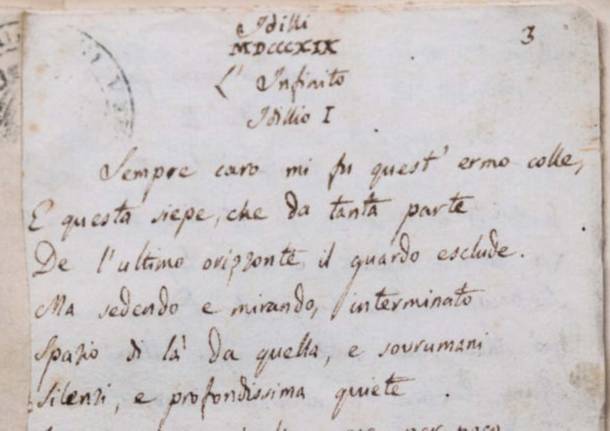 Idilli
MDCCCXIX
3
L' Infinito
Idillio I
Sempre caro mi fu quest' ermo colle,
E questa siepe, che da tanta parte
De l'ultimo orizzonte il guardo esclude.
Ma sedendo e mirando, interminato
Spazio di là da quella, e sovrumani
Silenzi, e profondissima quiete